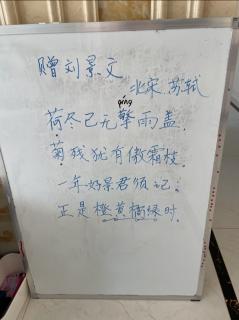 赠刘景文
北宋.苏轼
qíng
荷尽已无擎雨盖.
菊残犹有傲霜枝.
一年好景君须记.
正是橙黄橘绿时.